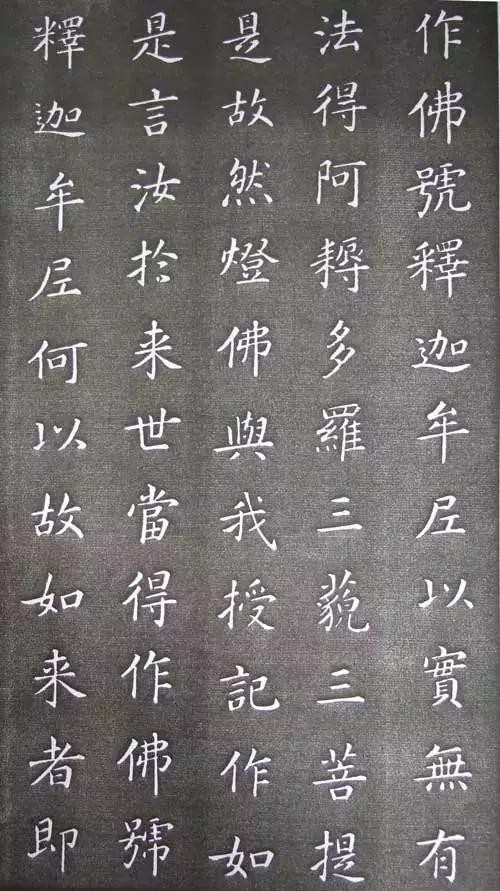 作佛號釋迦牟尼以實無有
法得阿耨多羅三藐三菩提
是故然燈佛與我授記作如
是言汝於来世當得作佛號
釋迦牟尼何以故如来者即